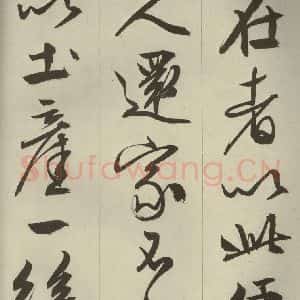 在者以此
人還家不
以土產一
Shufawang.CN